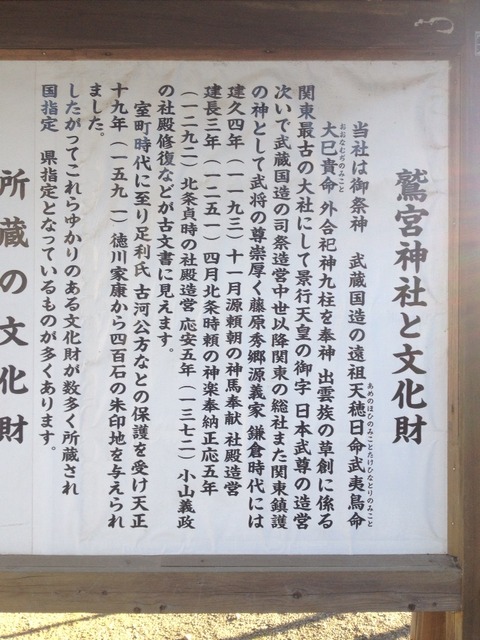 鷲宮神社と文化財
当社は御祭神　武蔵国造の遠祖天穂日命武夷鳥命
あめのほひのみことたけひなとりのみこと
大巳貴命　外合祀神九柱を奉神　出雲族の草創に係る
おおなむぢのみこと
関東最古の大社にして景行天皇の御字　日本武尊の造営
次いで武蔵国造の司祭造営中世以降関東の総社また関東鎮護
の神として武将の尊崇厚く藤原秀郷源義家　鎌倉時代には
建久四年（一一九三）十一月源頼朝の神馬奉献　社殿造営
建長三年（一二五一）四月北条時頼の神楽奉納正応五年
（一二九二）北条貞時の社殿造営　応安五年（一三七二）小山義政
の社殿修復などが古文書に見えます。
室町時代に至り足利氏　古河公方などの保護を受け天正
十九年（一五九一）徳川家康から四百石の朱印地を与えられ
ました。
したがってこれらゆかりのある文化財が数多く所蔵され
国指定　県指定となっているものが多くあります。
所蔵の文化財